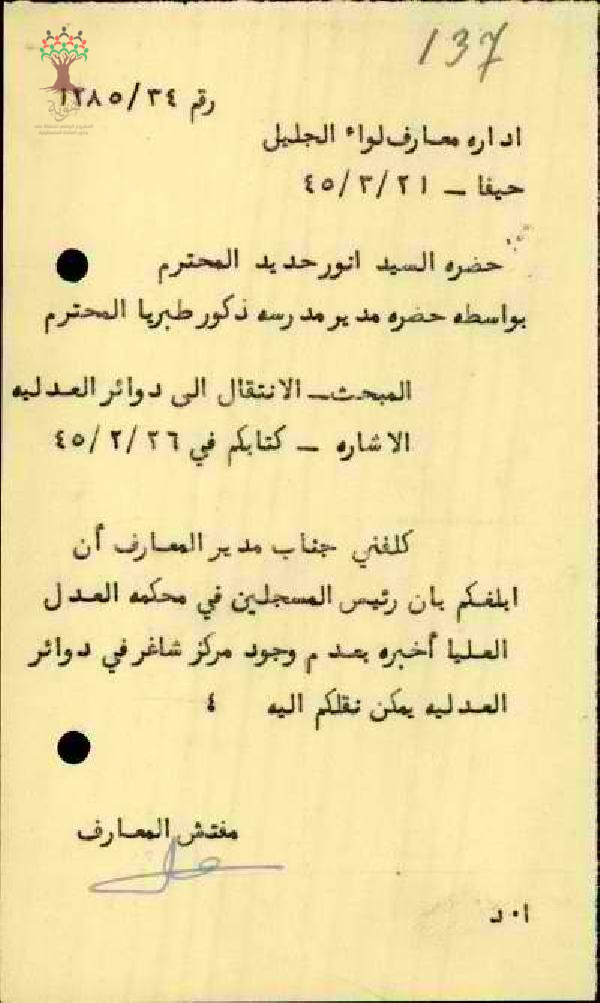 137
هوية
رقم ١٢٨٥/٣٤
اداره معارف لواء الجليل
حيفا ــ ٤٥/٣/٢١
حضره السيد انور حديد المحترم
بواسطه حضره مدير مدرسه ذكور طبريا المحترم
المبحث ــ الانتقال الى دوائر العدليه
الاشاره ــ كتابكم في ٤٥/٢/٢٦
كلفني جناب مدير المعارف أن
ابلغكم بان رئيس المسجلين في محكمه العدل
العليا أخبره بعدم وجود مركز شاغر في دوائر
العدليه يمكن نقلكم اليه ٤
مفتش المعارف
ا٠د